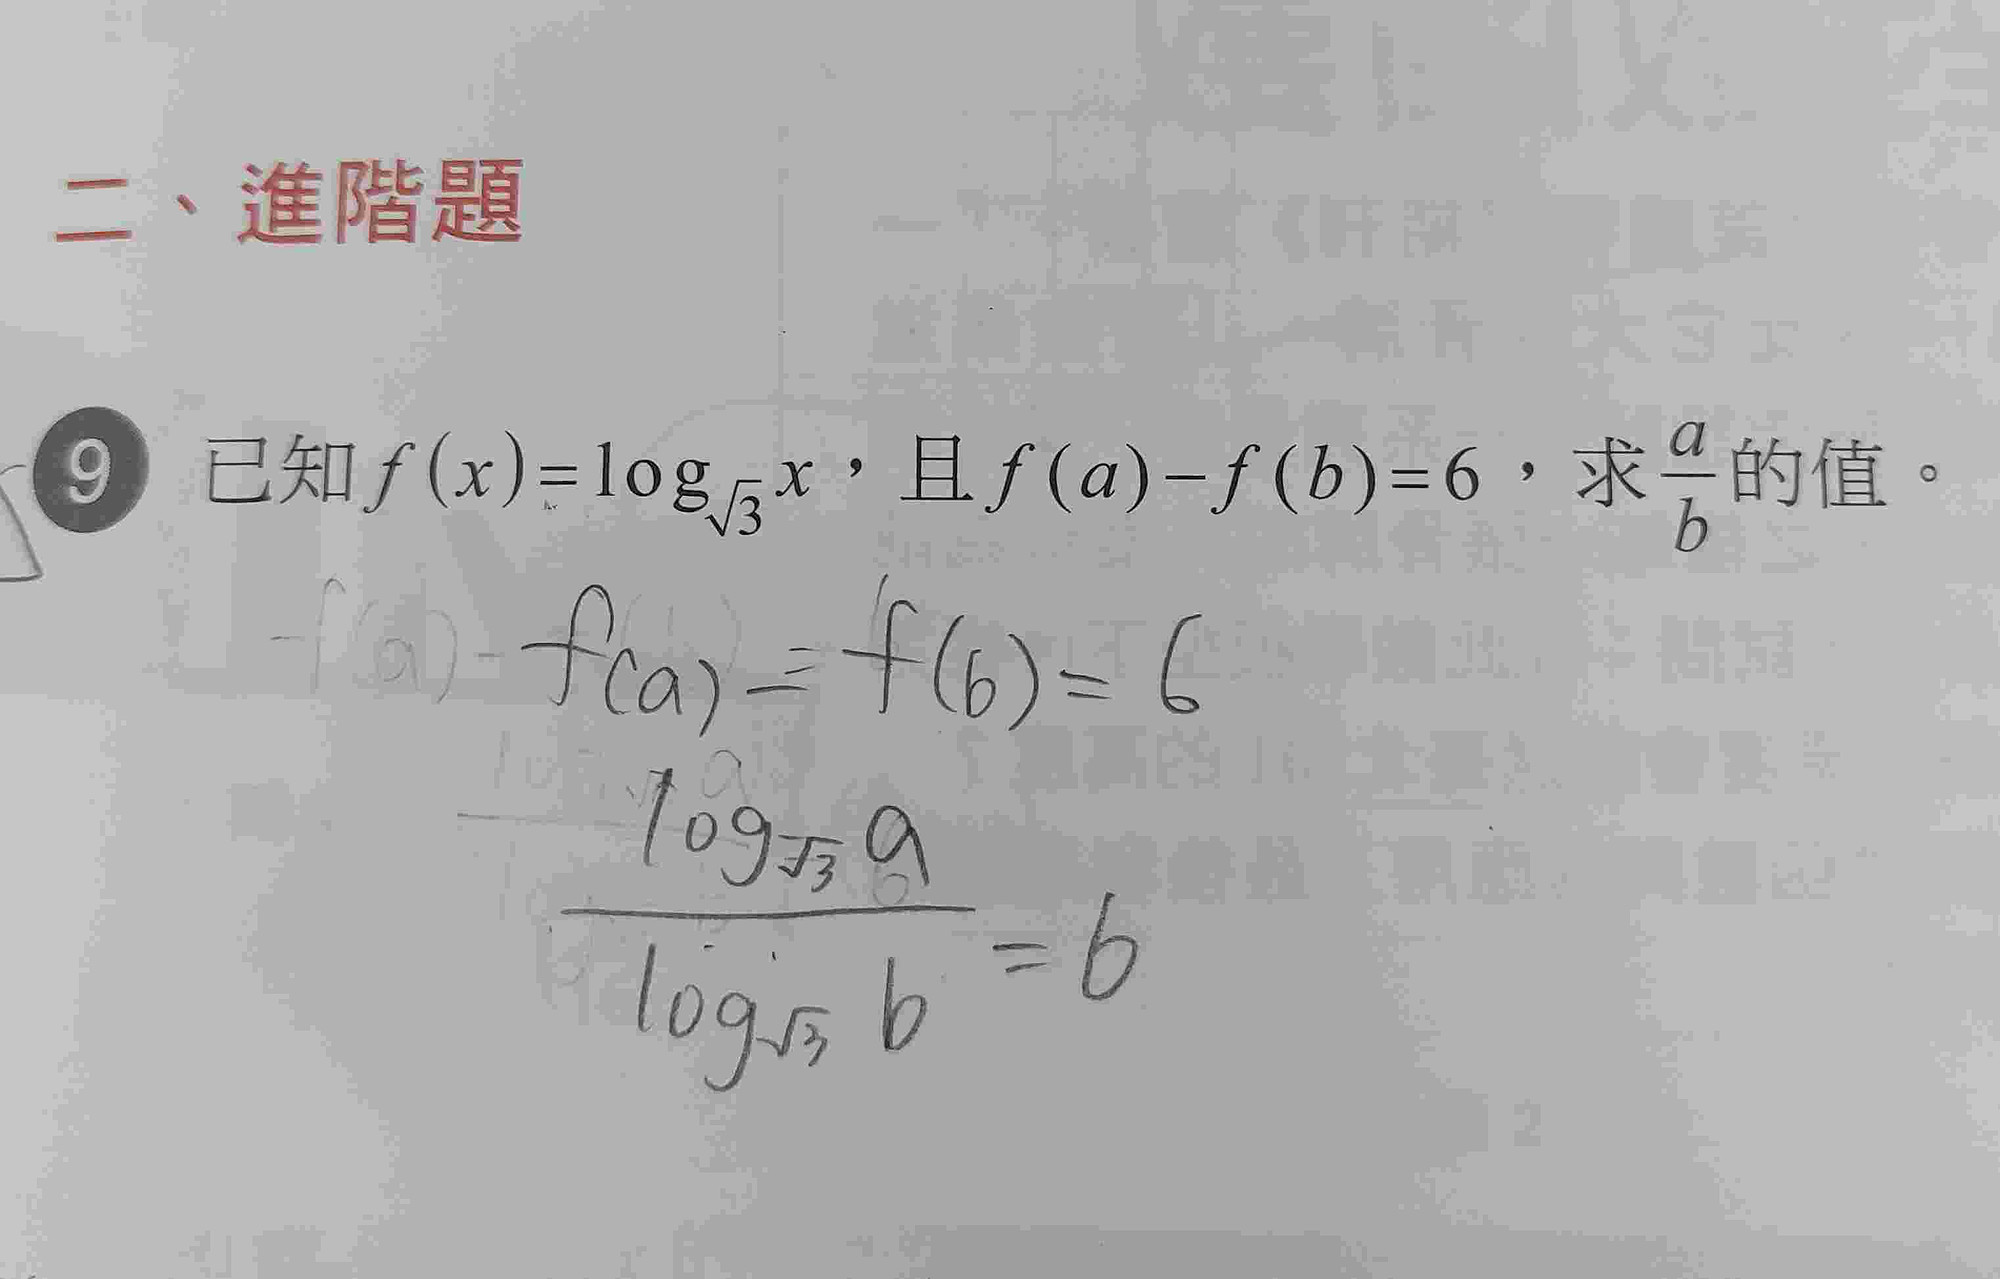 二、進階題
9 已知 f(x)=log_√3 x，且 f(a)−f(b)=6，求 a/b 的值。
f(a) = f(b) = 6
log_√3 a
log_√3 b = 6